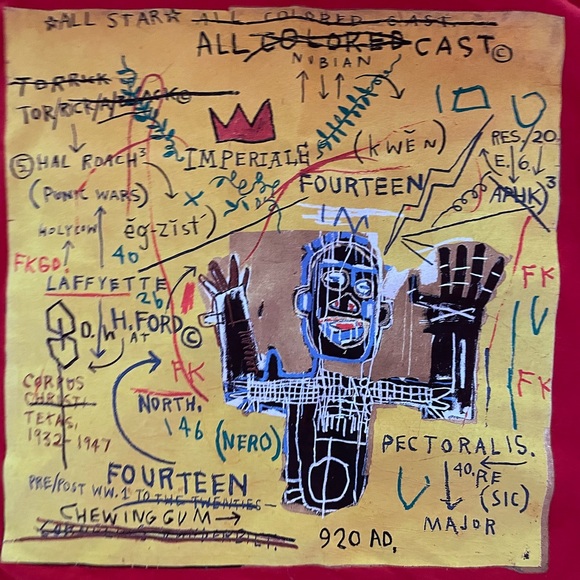 ☆ALL STAR☆ ALL COLORED CAST.
ALL COLORED CAST©
NUBIAN
TOR/ROCK/A/BLACK©
IMPERIALE (kwĕn)
RES/20.
E. 6.
⑤HAL ROACH³
FOURTEEN
(PUNIC WARS)
HOLYCOW
ĕg-zĭst')
FKGD.
40
LAFFYETTE
26
FK
D. H. FORD©
AT
FK
FK
CORPUS
CHRISTI
TEXAS,
1932-1947
NORTH.
146 (NERO)
PECTORALIS.
FOURTEEN
40.RE
(SIC)
MAJOR
PRE/POST WW.1 TO THE TWENTIES-
CHEWING GUM→
920 AD.